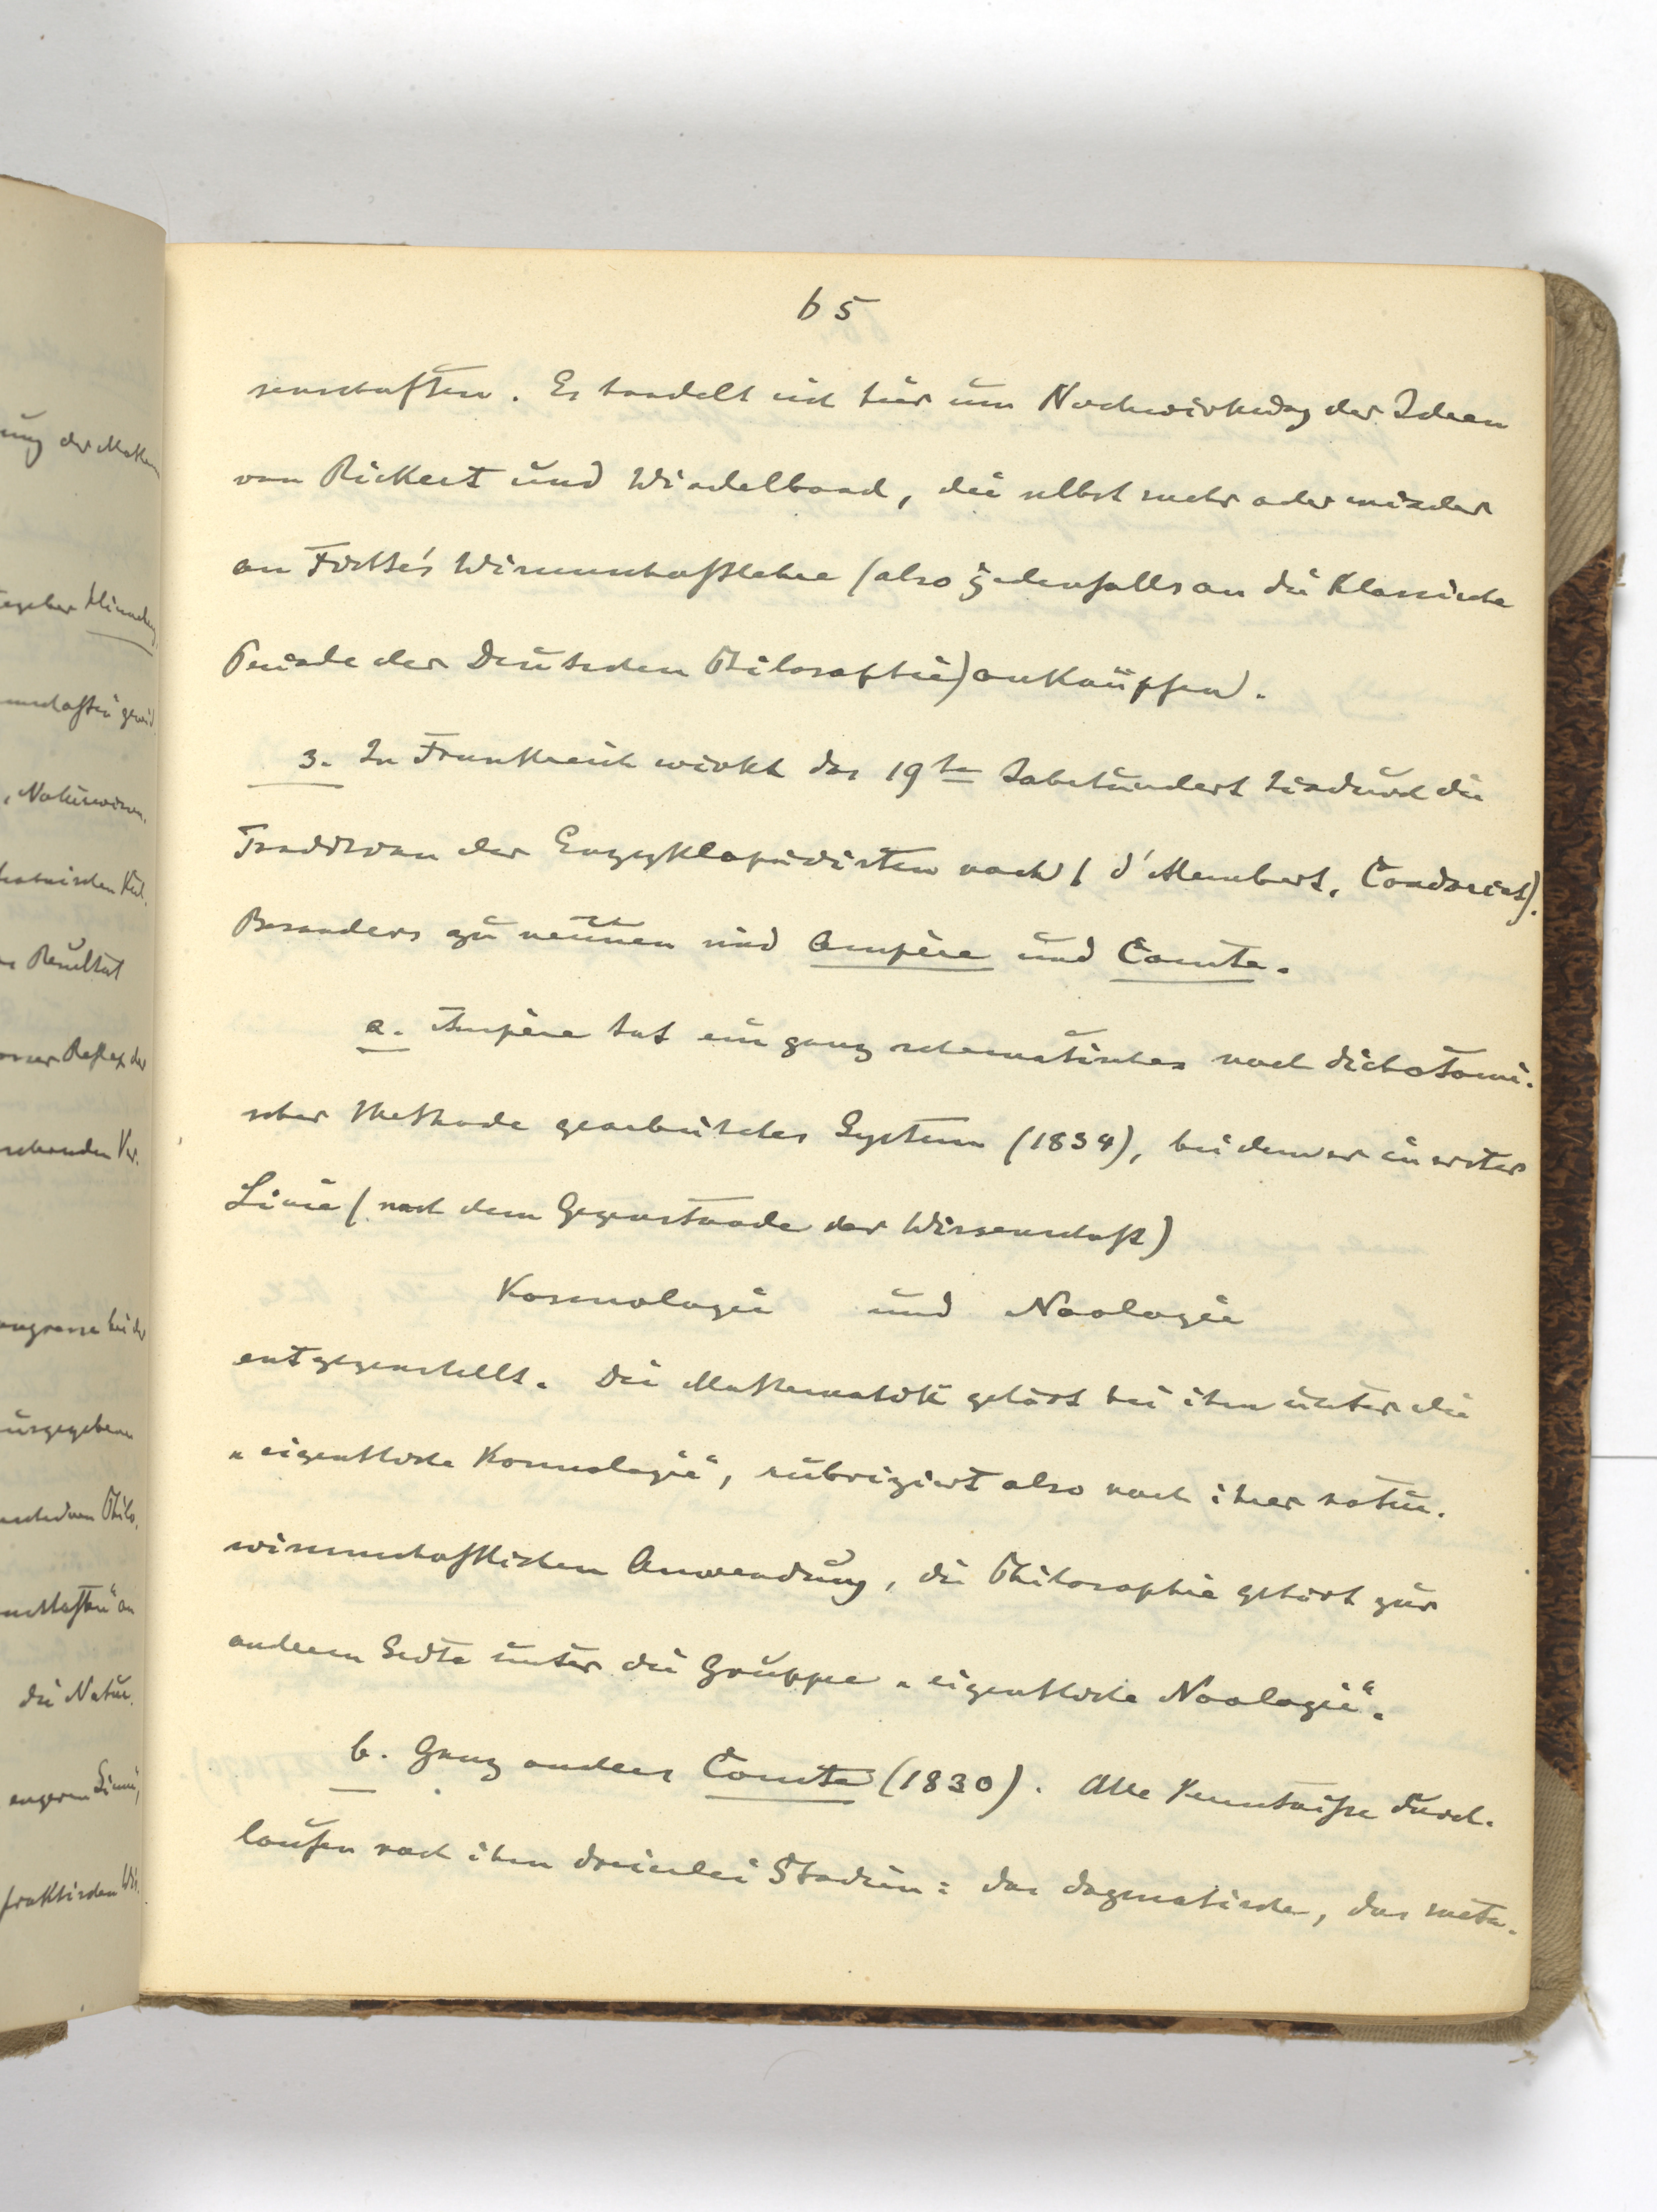 ung der Mathe
Naturwissen.
technischen Kul.
Resultat
Reflex der
bei der
ausgegeben
Philo.
an
die Natur.
engeren Sinne",
praktischen Wis.
65
senschaften. Es handelt sich hier um Nachwirkung der Ideen
von Rickert und Windelband, die selbst mehr oder minder
an Fichte's Wissenschaftslehre (also jedenfalls an die klassische
Periode der Deutschen Philosophie) anknüpfen.
3. In Frankreich wirkt das 19te Jahrhundert hindurch die
Tradition der Enzyklopädisten nach (d'Alembert, Condorcet).
Besonders zu nennen sind Ampère und Comte.
a. Ampère hat ein ganz schematisches nach dichotomi-
scher Methode gearbeitetes System (1834), bei dem er in erster
Linie (nach dem Gegenstande der Wissenschaft)
Kosmologie und Noologie
entgegenstellt. Die Mathematik gehört bei ihm unter die
„eigentliche Kosmologie", rubriziert also nach ihrer natur-
wissenschaftlichen Anwendung, die Philosophie gehört zur
anderen Seite unter die Gruppe „eigentliche Noologie".
b. Ganz anders Comte (1830). Alle Kenntnisse durch-
laufen nach ihm dreierlei Stadien: das dogmatische, das meta-